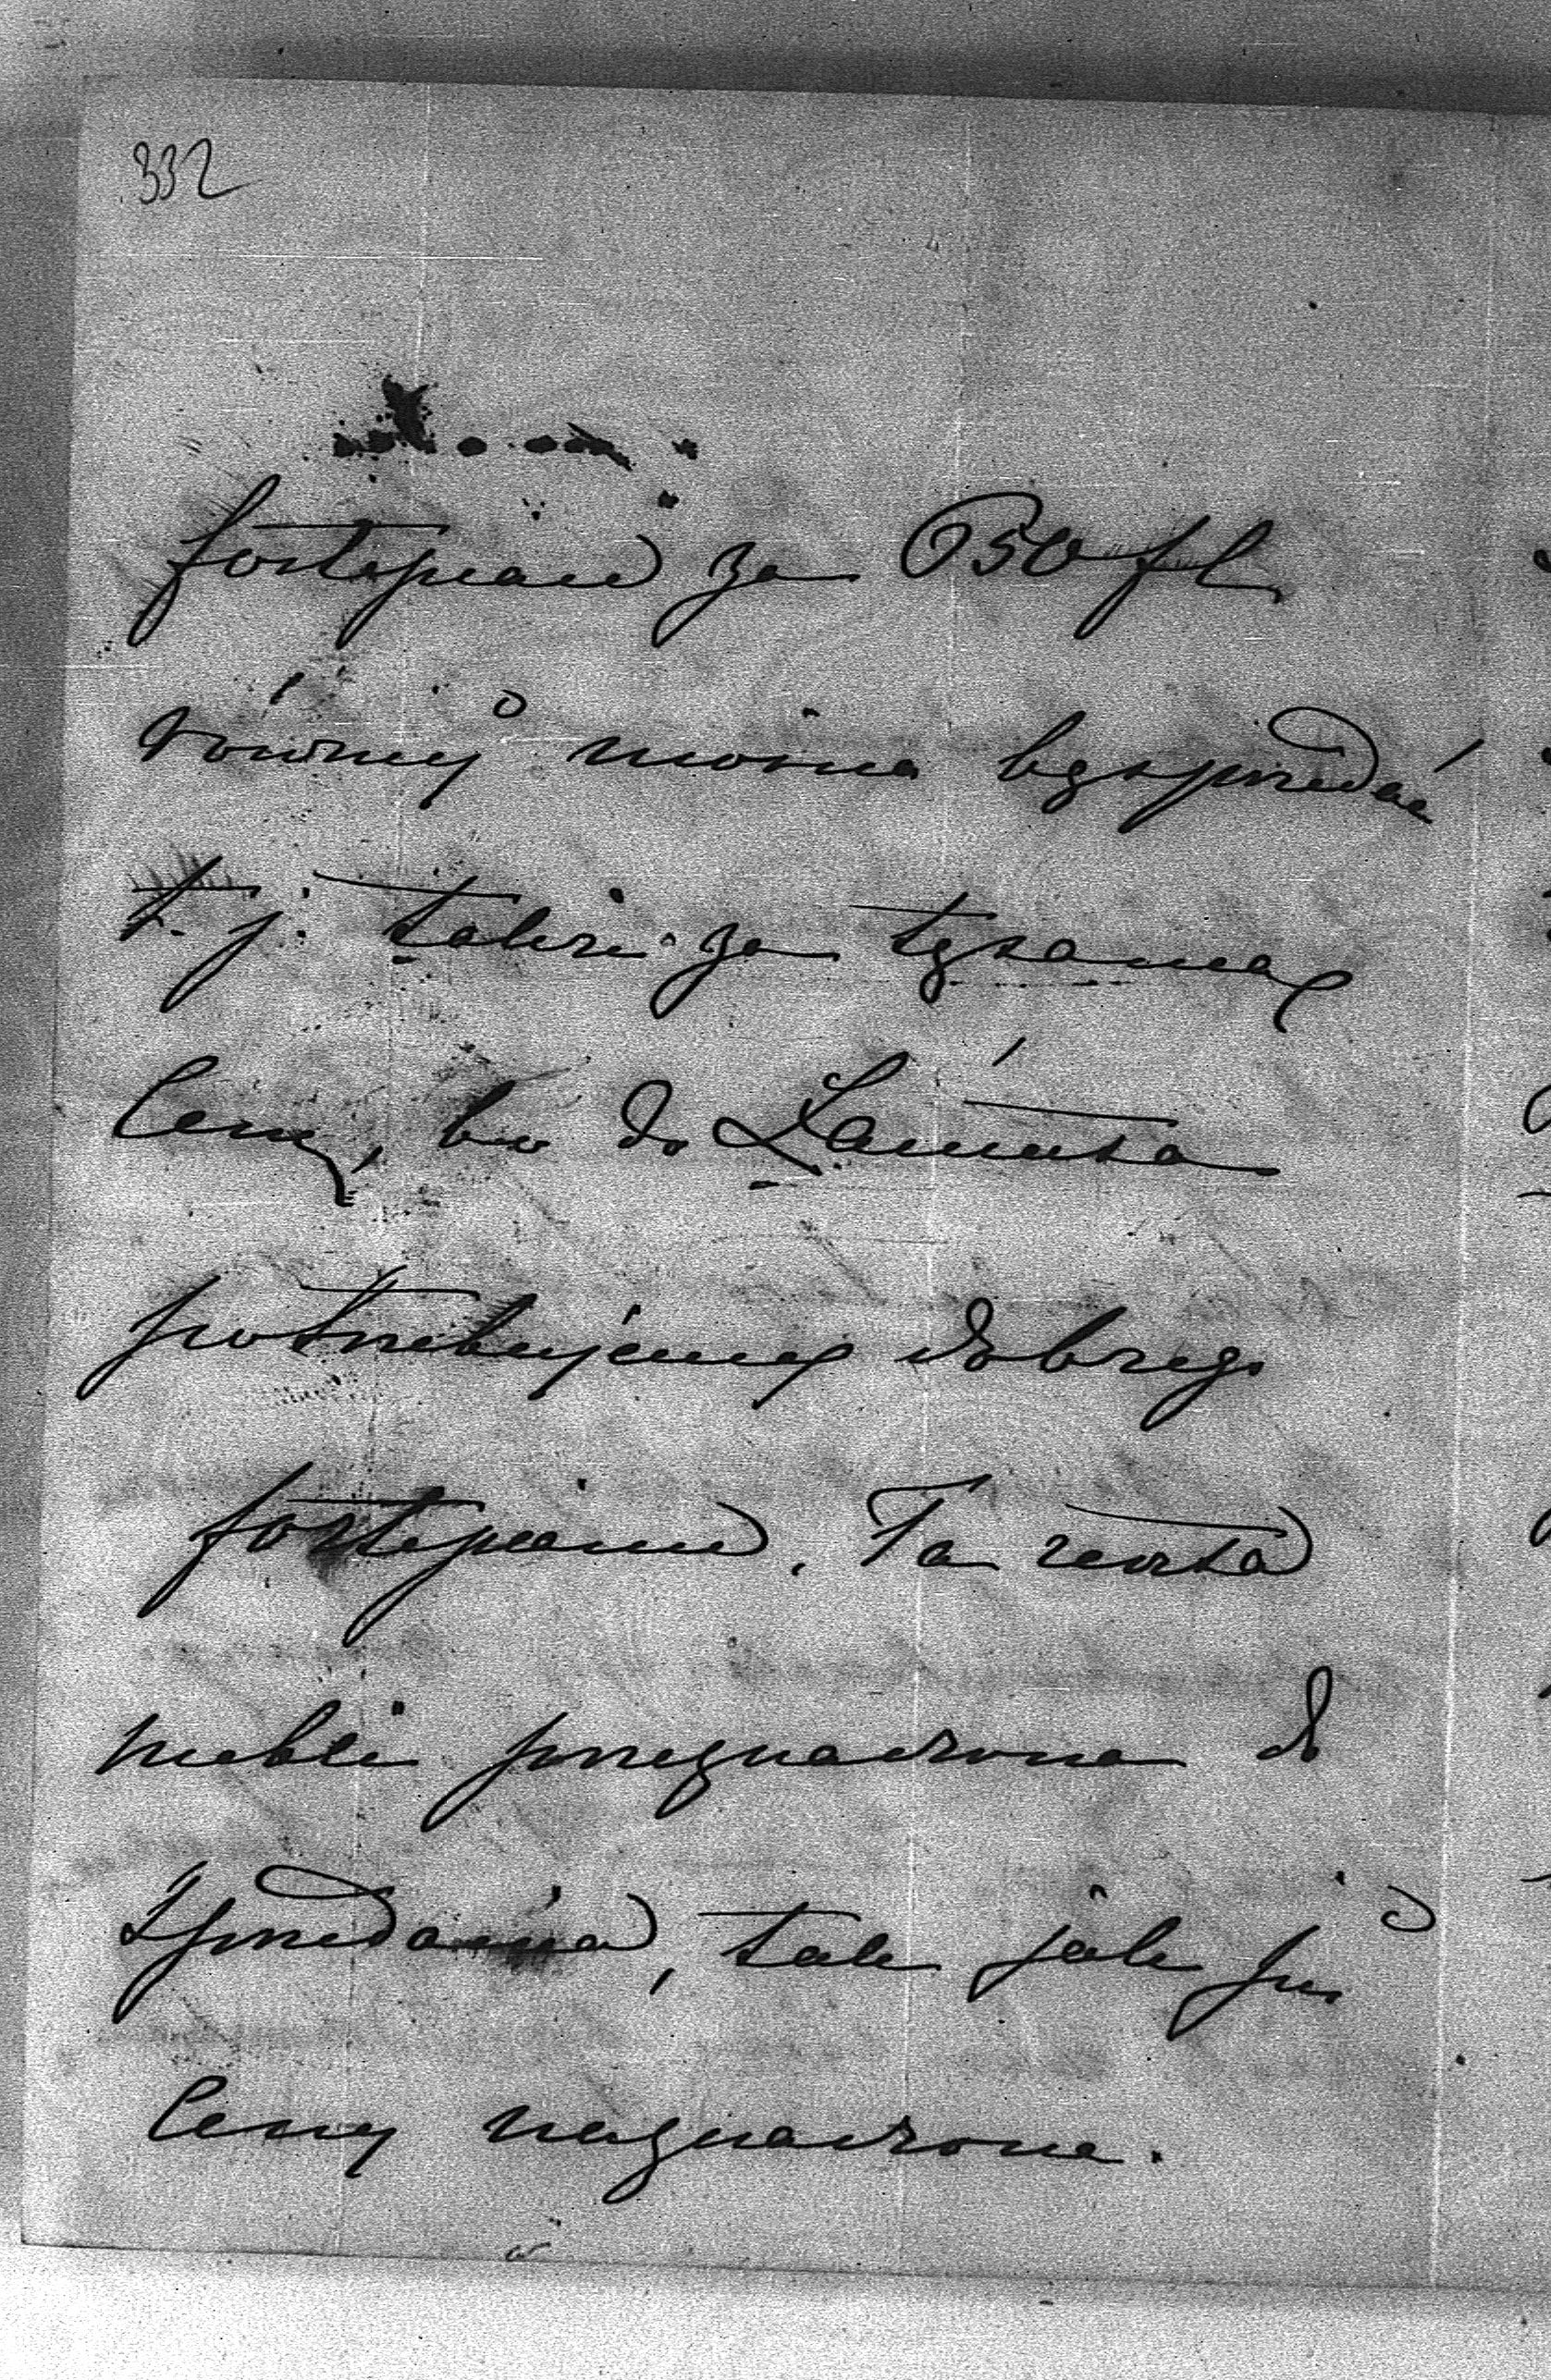 332
fortepian za 650 fl
również można by sprzedać
t. j. także za tę samą
Cenę, bo do Łańcuta
potrzebujemy dobrego
fortepianu. Ta reszta
mebli przeznaczona do
Sprzedania, tak jak już
Ceny naznaczone.